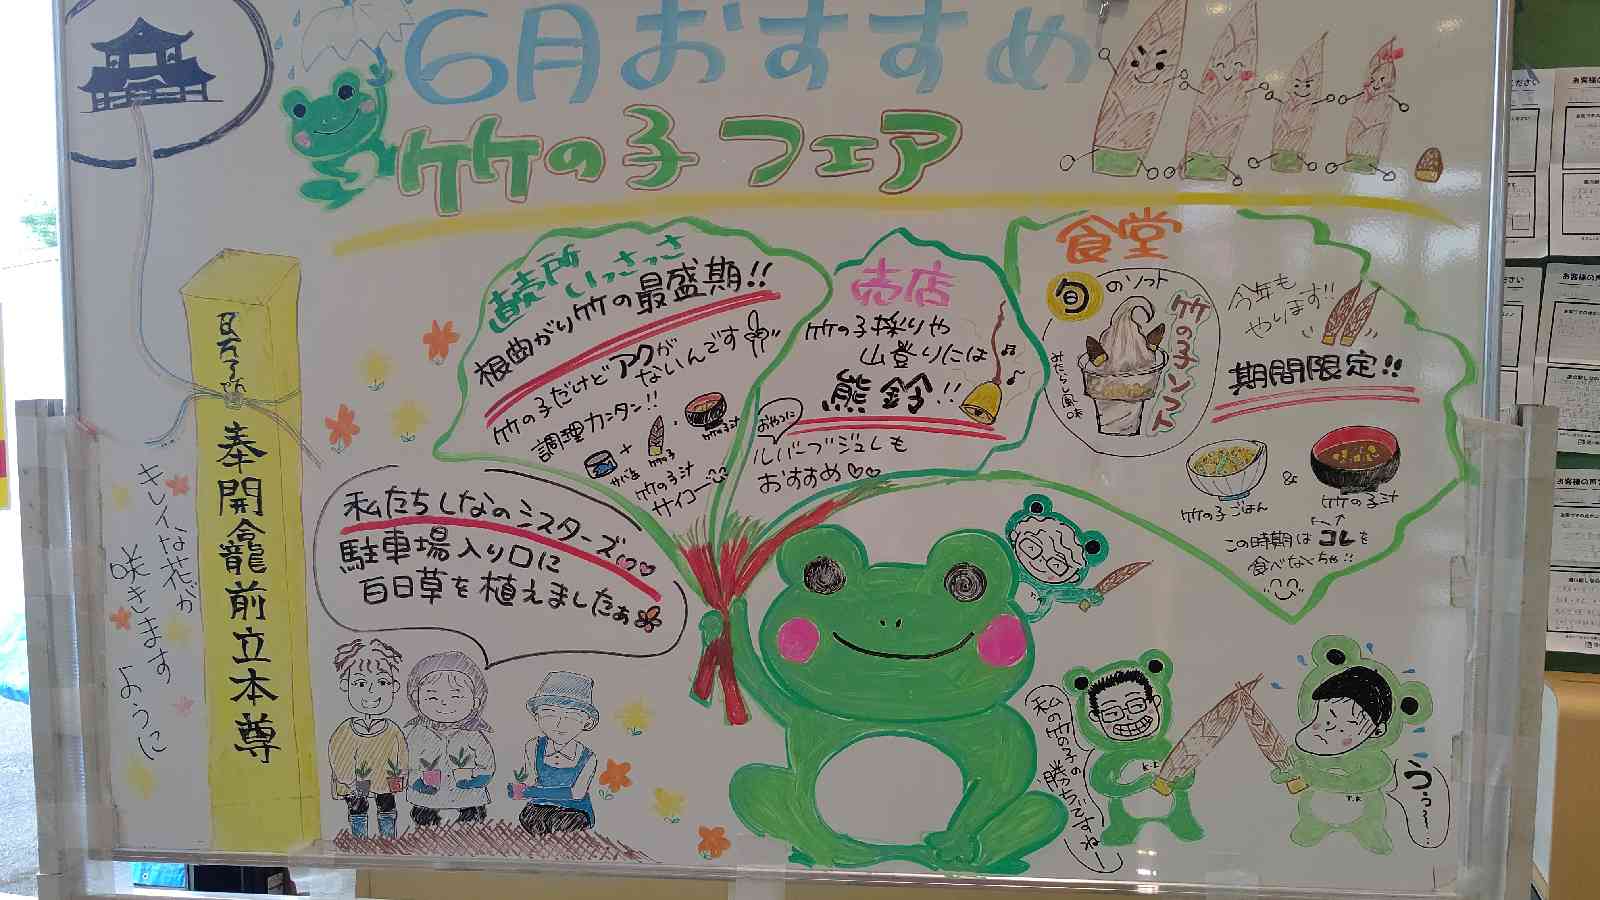 6月おすすめ
竹の子フェア
直売所
いっさっさ
根曲がり竹の最盛期!!
竹の子だけどアクが
ないんです
調理カンタン!!
さば缶
竹の子
竹の子汁
竹の子汁
サイコー
売店
竹の子採りや
山登りには
熊鈴!!
おやつに
ルバーブジュレも
おすすめ♡♡
食堂
旬のソフト
竹の子ソフト
みたらし風味
今年も
やります!!
期間限定!!
竹の子ごはん
&
竹の子汁
この時期はコレを
食べなくちゃ!!
私たちしなのシスターズ♡♡
駐車場入り口に
百日草を植えましたぁ
奉開龕前立本尊
キレイな花が
咲きます
ように
私の竹の子の
勝ちですねー
K.K
T.K
うぅー…